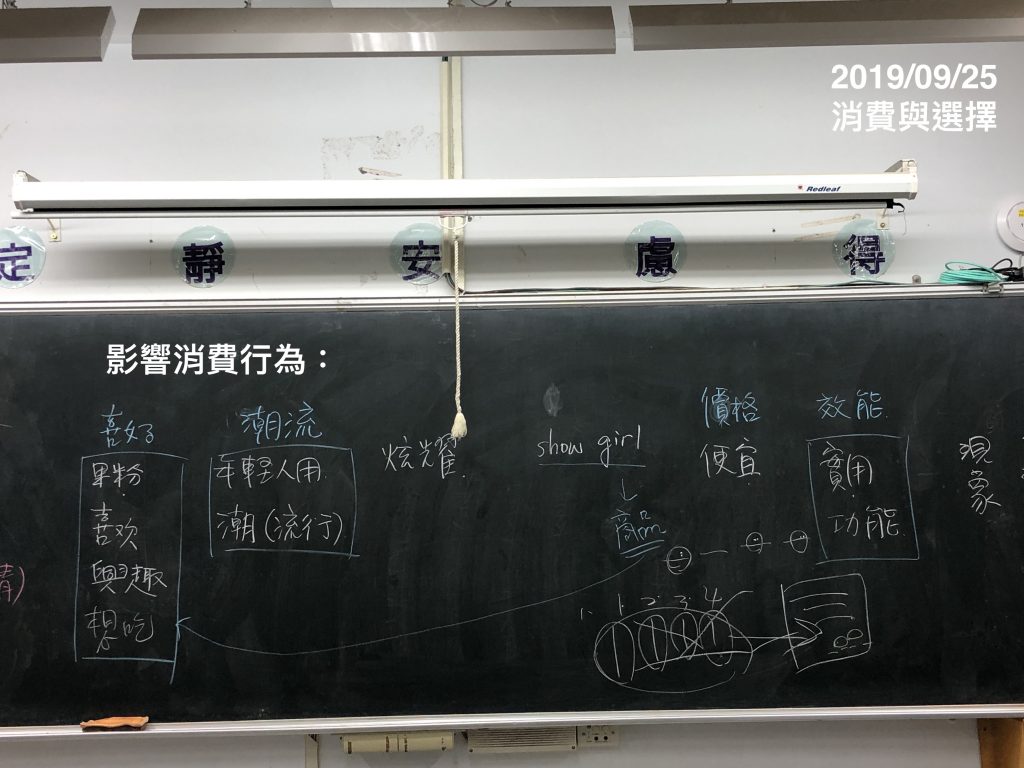 2019/09/25
消費與選擇
Redleaf
定 靜 安 慮 得
影響消費行為：
喜好
果粉
喜欢
興趣
想吃
潮流
年輕人用
潮(流行)
炫耀
show girl
↓
商品
價格
便宜
效能
實用
功能
現象
1. 2. 3. 4